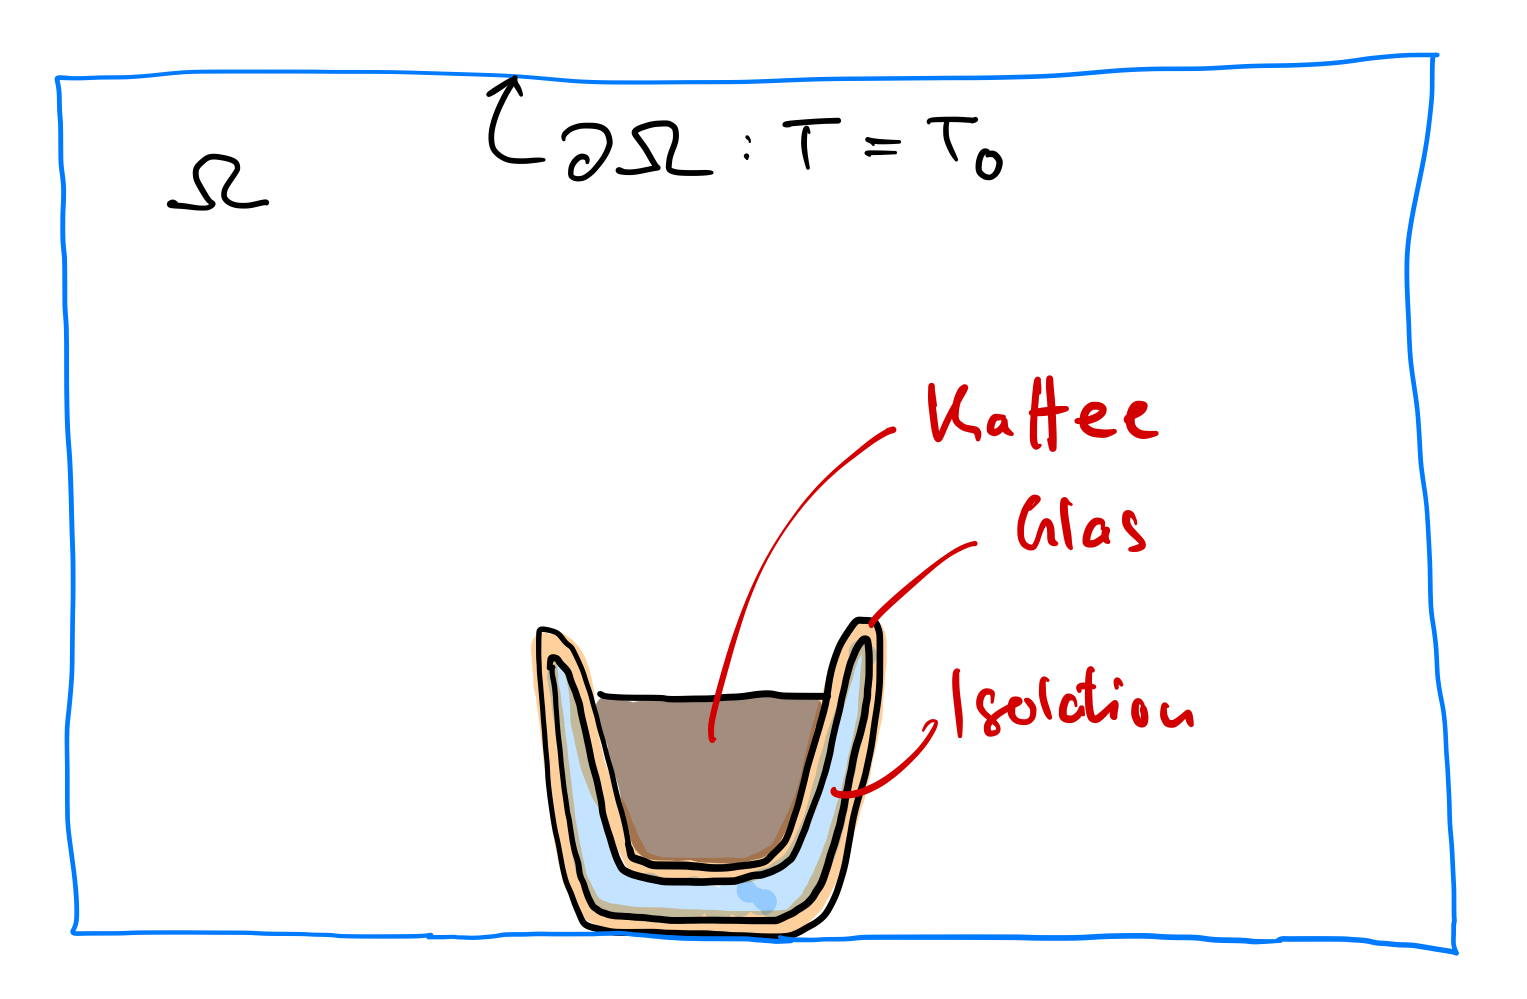 ∂Ω : T = T₀
Ω
Kaffee
Glas
Isolation